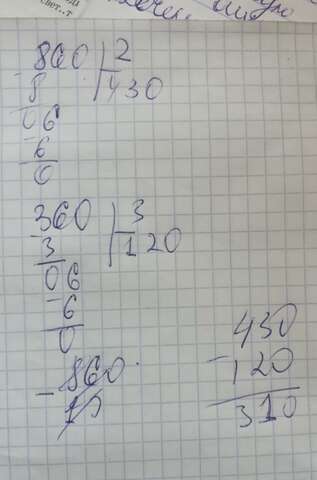 - 860 | 2
8 | 430
06
- 6
0
- 360 | 3
3 | 120
06
- 6
0
- 860
430
- 120
310